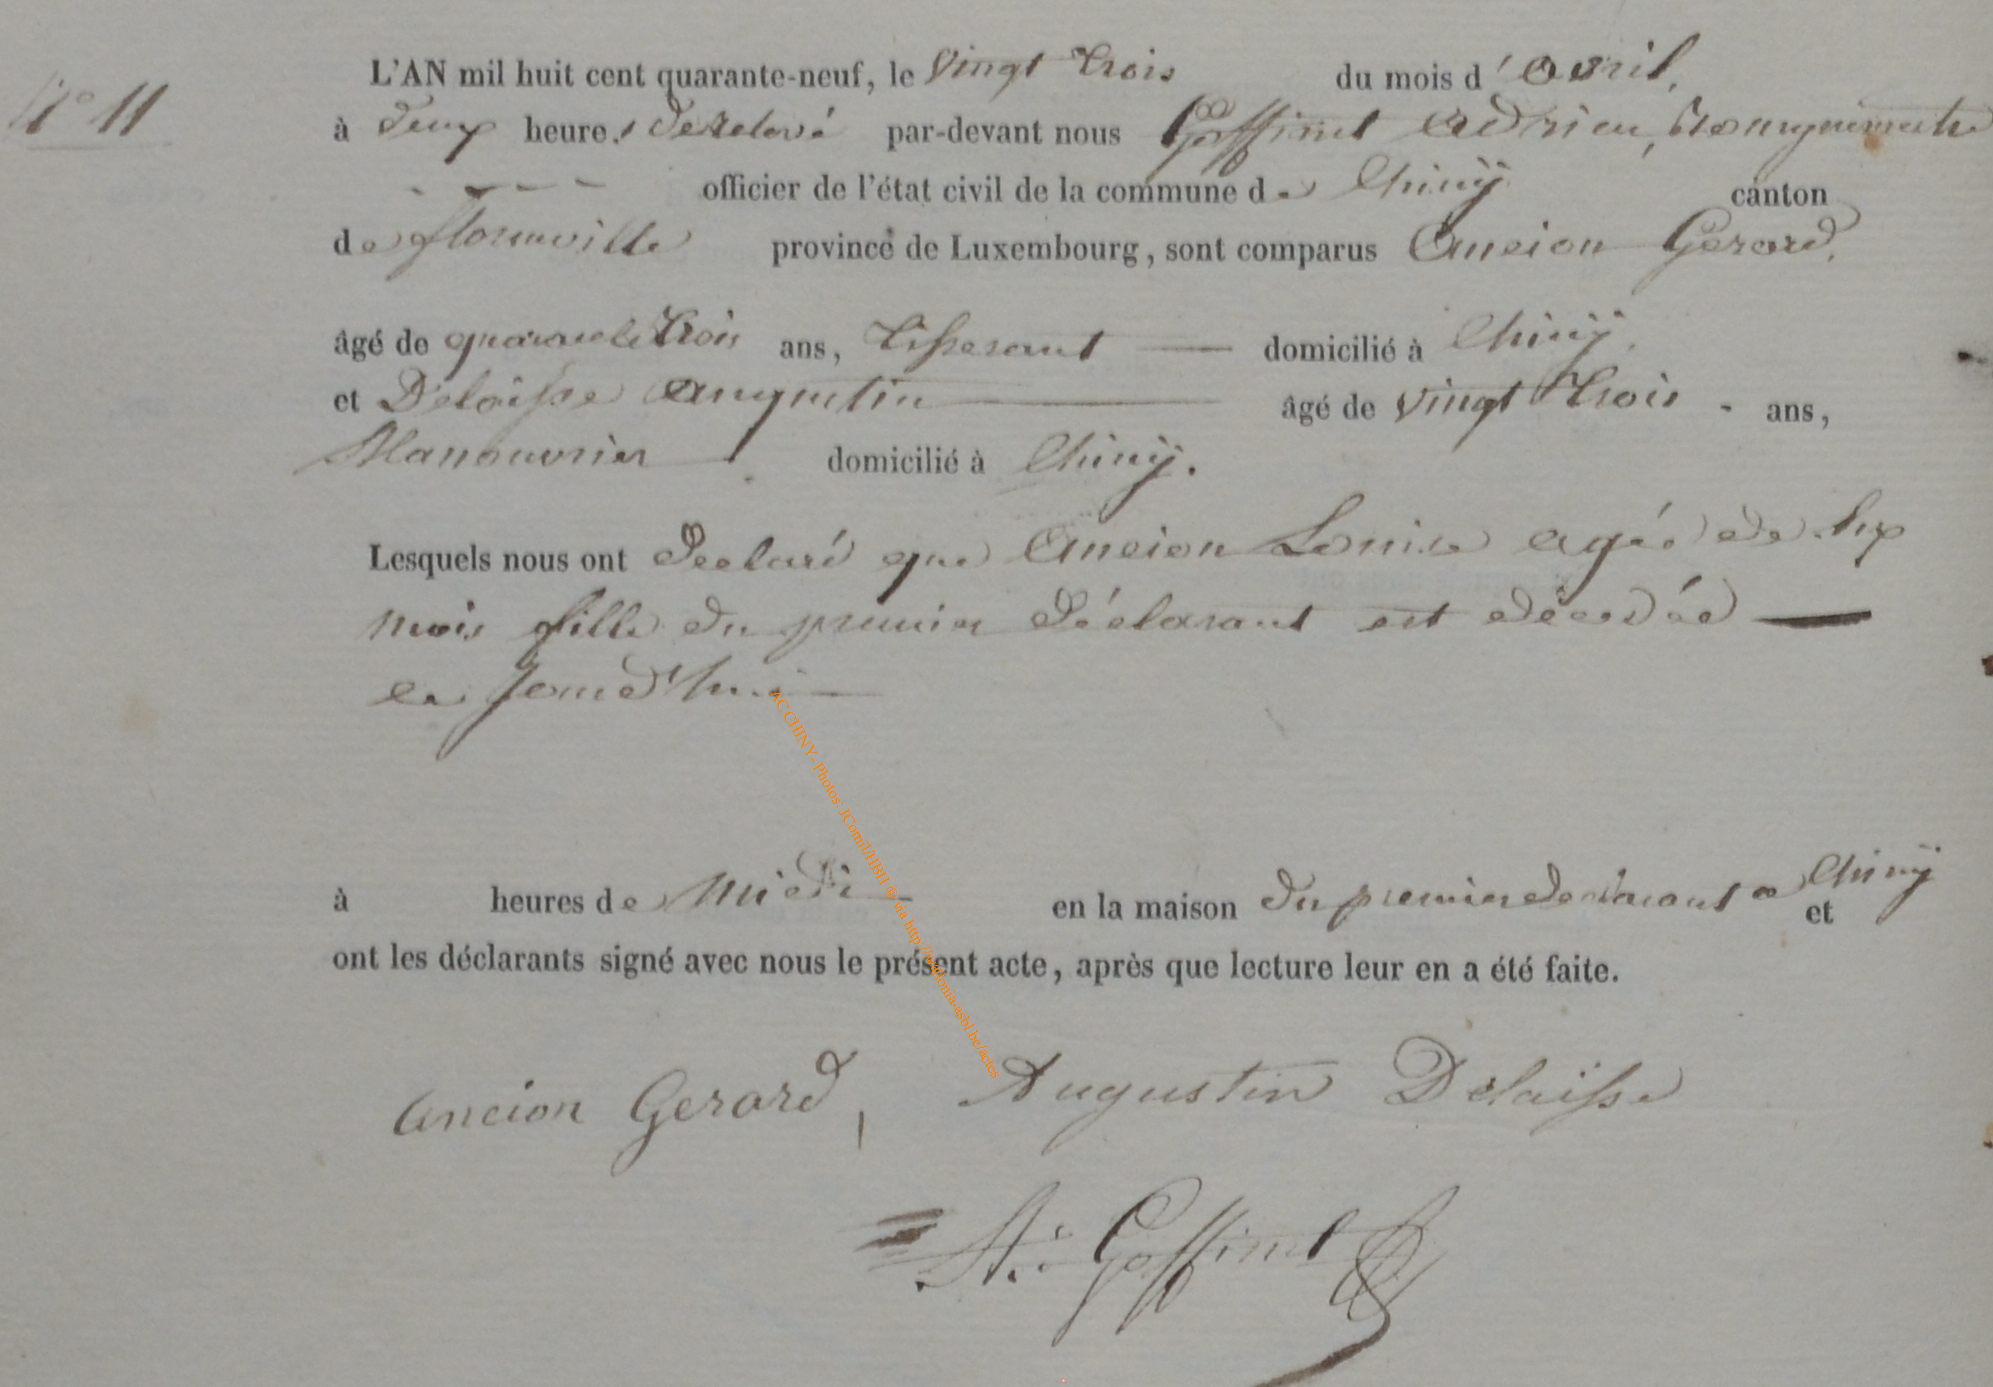 N° 11
L'AN mil huit cent quarante-neuf, le vingt trois du mois d'avril,
à deux heures de relevé par-devant nous Goffinet Adrien, Bourguemestre
officier de l'état civil de la commune de Chinÿ canton
de florenville province de Luxembourg, sont comparus Ancion Gerard,
âgé de quarante trois ans, tisserant domicilié à Chinÿ,
et Delaisse augustin âgé de vingt trois ans,
Manouvrier domicilié à Chinÿ.
Lesquels nous ont declaré que Ancion Louise agée de six
mois fille du premier déclarant est décédée
ce jourd'hui
à heures de midi en la maison du premier declarant a Chinÿ et
ont les déclarants signé avec nous le présent acte, après que lecture leur en a été faite.
Ancion Gerard, Augustin Delaïsse
A. Goffinet
ACCHINY - Photos JCornil/HBH © via http://